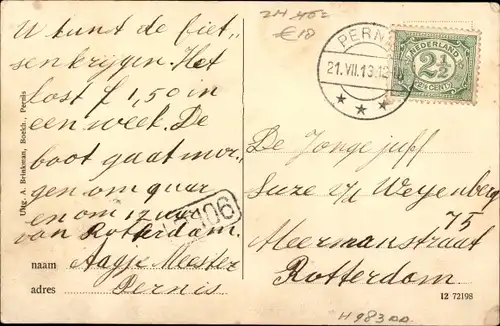 U kunt de fiet-
sen krijgen. Het
kost f 1,50 in
een week. De
boot gaat mor-
gen om
en om 12 uur
van Rotterdam.
naam Aagje Meester
adres Pernis
Uitg. A. Brinkman, Boekh., Pernis
106
€18
PERNIS
21.VII.13.12
* * *
NEDERLAND
2½
CENT
De Jonge juff
Suze v/d Weyenberg
75
Meermanstraat
Rotterdam.
12 72198